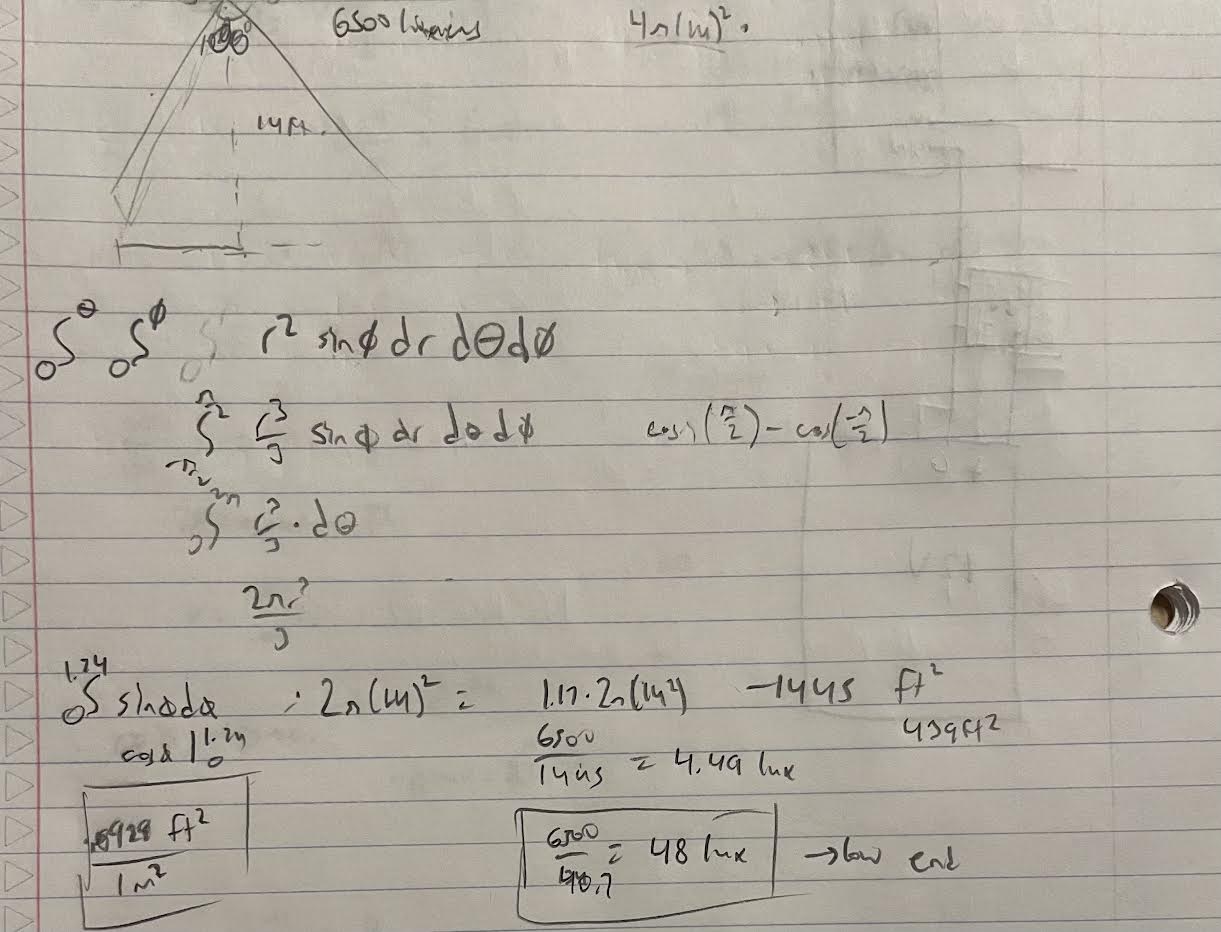 6500 lumens 4π(14)².
14 ft.
∫₀^θ ∫₀^ϕ r² sinϕ dr dθ dϕ
∫_{-π/2}^{π/2} r³/3 sinϕ dr dθ dϕ cos(π/2) - cos(-π/2)
∫₀^{2π} r³/3 · dθ
2πr³/3
∫₀^{1.24} sinϕdϕ : 2π(14)² = 1.17·2π(14²) -1445 ft²
cosϕ |₀^{1.24} 6500/1445 = 4.49 lux 439ft²
6500/ = 48 lux → low end
ft²/1m²